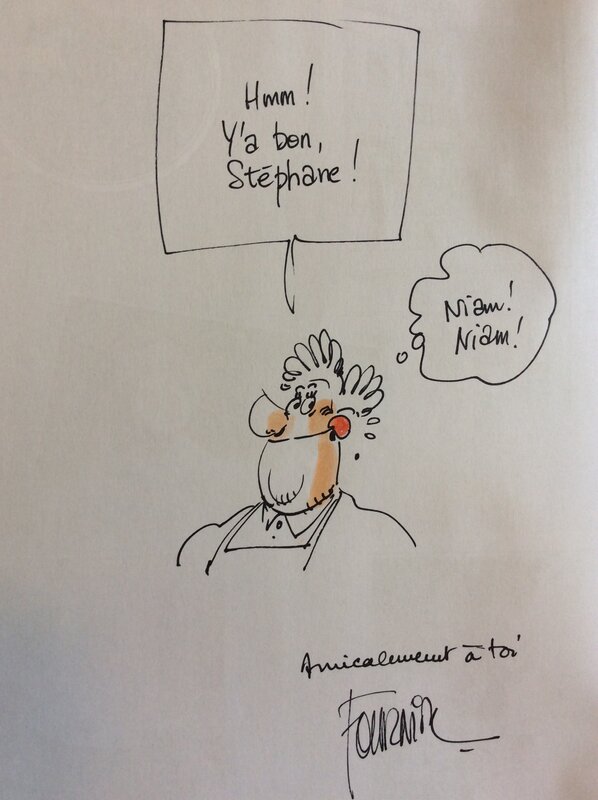 Hmm !
Y'a bon,
Stéphane !
Niam !
Niam !
Amicalement à toi
FOURNIER